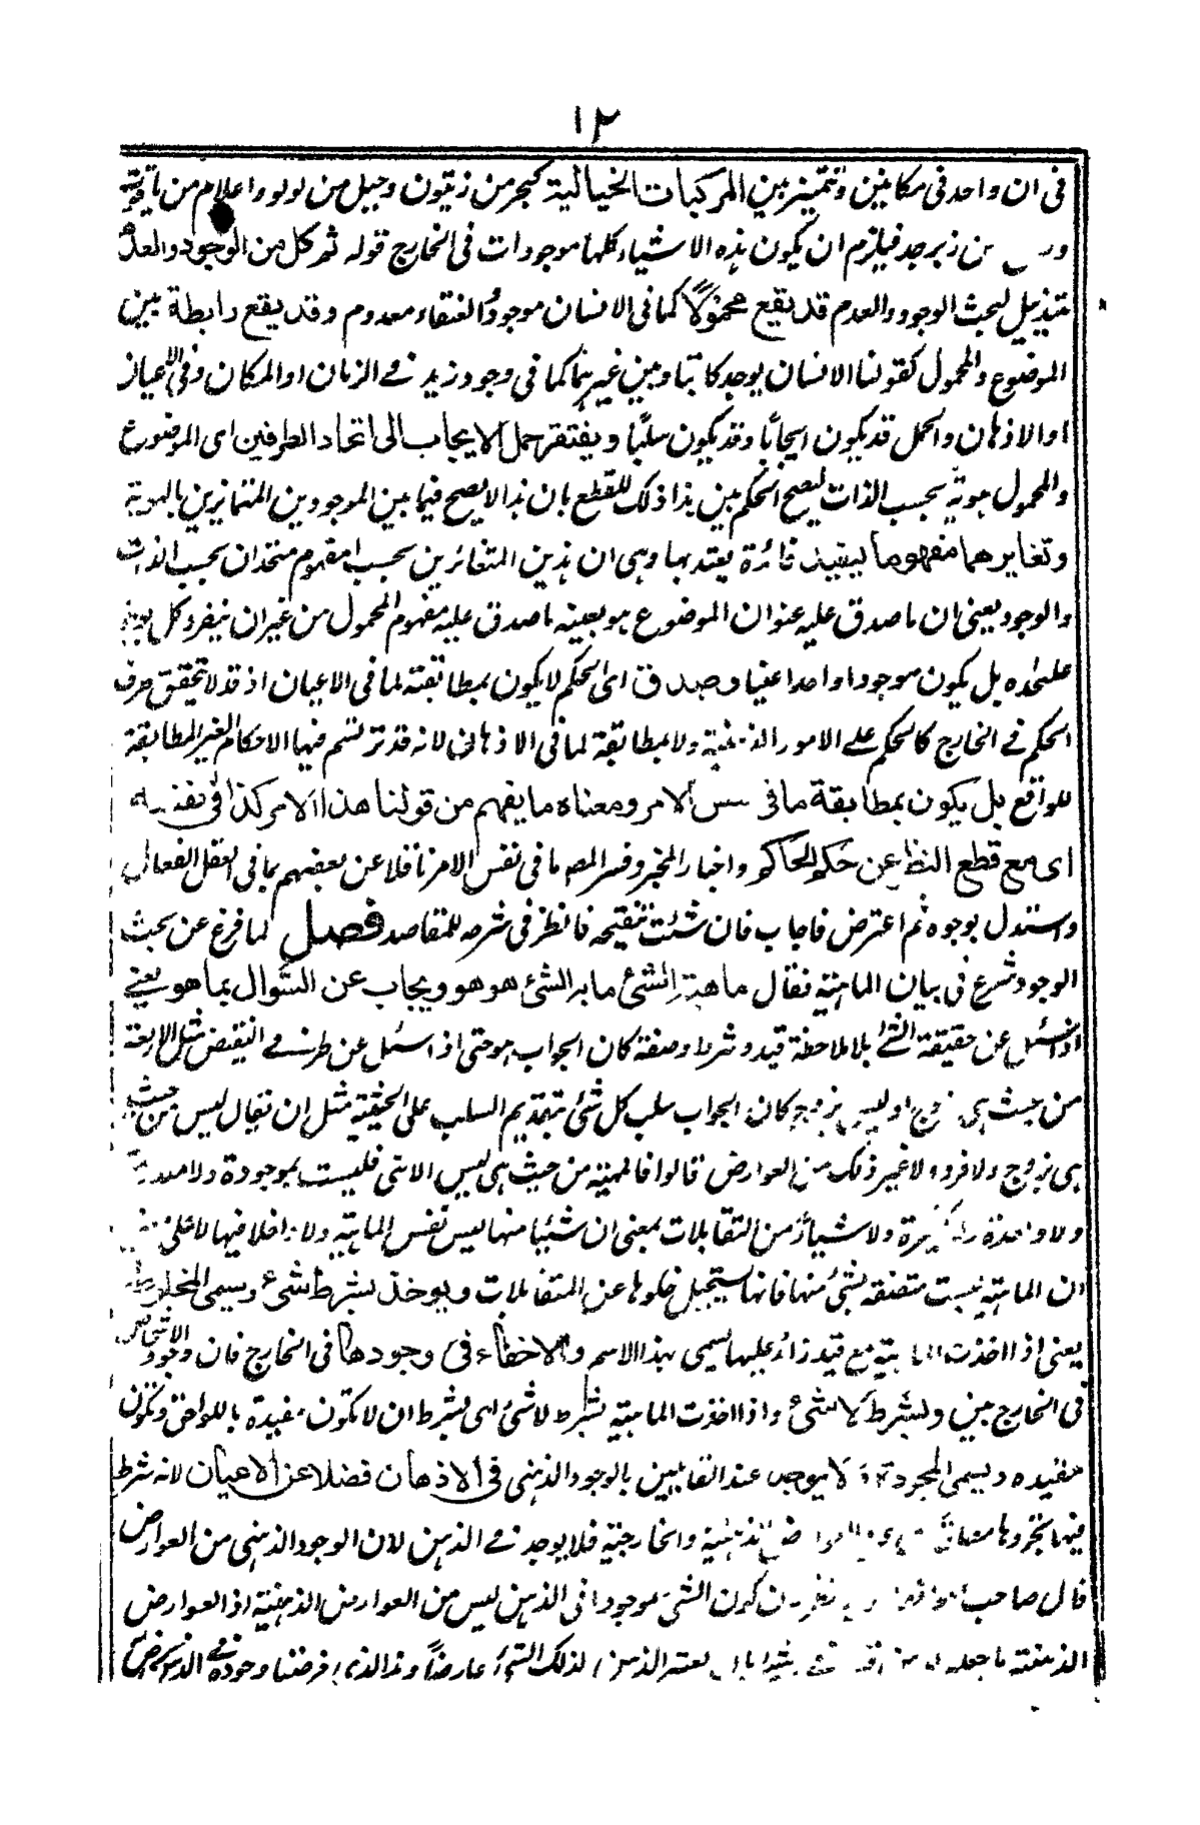 ١٢
فی ان واحد فی مکانین وتتمیز بین المرکبات الخیالیة کبحر من زیتون وجبل من لولو واعلام من یاقوتة
من زبرجد فیلزم ان یکون هذه الاشیاء کلها موجودات فی الخارج قوله ثم کل من الوجود والعدم
تذییل لبحث الوجود والعدم قد یقع محمولاً کما فی الانسان موجود والعنقاء معدوم وقد یقع رابطة بین
الموضوع والمحمول کقولنا الانسان یوجد کاتبا وبین غیرهما کما فی وجود زید فی الزمان او المکان وفی الاعیان
او الاذهان والحمل قد یکون ایجابًا وقد یکون سلبًا ویفتقر حمل الایجاب الی اتحاد الطرفین ای الموضوع
والمحمول هویة بحسب الذات لیصح الحکم بین هذا ذلک للقطع بان هذا لا یصح فیما بین الموجودین المتمایزین بالهویة
وتغایرهما مفهوما لیفید فائدة یعتد بها وهی ان هذین المتغائرین بحسب المفهوم متحدان بحسب الذات
والوجود یعنی ان ما صدق علیه عنوان الموضوع هو بعینه ما صدق علیه مفهوم المحمول من غیر ان ینفرد کل بوجود
علیحده بل یکون موجودا واحدا عینیا وصدق ای الحکم لا یکون بمطابقة لما فی الاعیان اذ قد لا تحقق طرف
الحکم فی الخارج کالحکم علی الامور الذهنیة ولا بمطابقة لما فی الاذهان لانه قد ترتسم فیها الاحکام الغیر المطابقة
للواقع بل یکون بمطابقة ما فی نفس الامر ومعناه ما یفهم من قولنا هذا الامر کذا فی نفسه
ای مع قطع النظر عن حکم الحاکم واخبار المخبر وفسر المص ما فی نفس الامر ناقلا عن بعضهم بما فی العقل الفعال
واستدل بوجوه ثم اعترض فاجاب فان شئت تنقیحه فانظر فی شرحه للمقاصد فصل لما فرغ عن بحث
الوجود شرع فی بیان الماهیة فقال ماهیة الشئ ما به الشئ هو هو ویجاب عن السؤال بما هو یعنی
اذا سئل عن حقیقة الشئ بلا ملاحظة قید وشرط وصفة کان الجواب هو حتی اذ اسئل عن طرفی النقیض مثل الاربعة
من حیث هی زوج او لیس بزوج کان الجواب سلب کل شئ بتقدیم السلب علی الحیثیة مثل ان یقال لیس من حیث
هی بزوج ولا فرد ولا غیر ذلک من العوارض قالوا فالماهیة من حیث هی لیس الا هی فلیست بموجودة ولا معدومة
ولا واحدة ولا کثیرة ولا شیأ من المتقابلات بمعنی ان شیئا منها لیس نفس الماهیة ولا داخلا فیها لا علی معنی
ان الماهیة لیست متصفة بشئ منها فانها یستحیل خلوها عن المتقابلات ویوخذ بشرط شئ ویسمی المخلوطة
یعنی اذا اخذت الماهیة مع قید زائد علیها یسمی بهذا الاسم ولا خفاء فی وجودها فی الخارج فان وجود الاشخاص
فی الخارج بین وبشرط لا شئ واذا اخذت الماهیة بشرط لا شئ ای بشرط ان لا تکون مقیدة باللواحق وتکون
مقیده ویسمی المجردة لا یوجد عند القایلین بالوجود الذهنی فی الاذهان فضلا عن الاعیان لانه شرط
فیها تجردها الذهنیة والخارجیة فلا یوجد فی الذهن لان الوجود الذهنی من العوارض
قال صاحب ان کون الشئ موجودا فی الذهن لیس من العوارض الذهنیة اذ العوارض
الذهنیة ما جعله یعتبر الذهن لذلک الشئ عارضاً